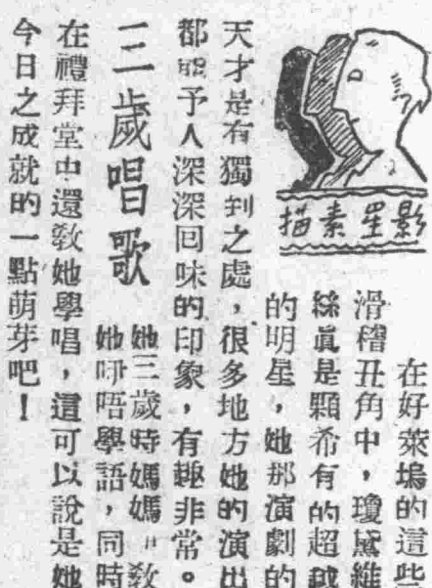 影星素描
在好萊塢的這些
滑稽丑角中，瓊黛維
絲眞是顆希有的超越
的明星，她那演劇的
天才是有獨到之處，很多地方她的演出
都能予人深深回味的印象，有趣非常。
三歲唱歌
她三歲時媽媽敎
她呀唔學語，同時
在禮拜堂中還敎她學唱，這可以說是她
今日之成就的一點萌芽吧！